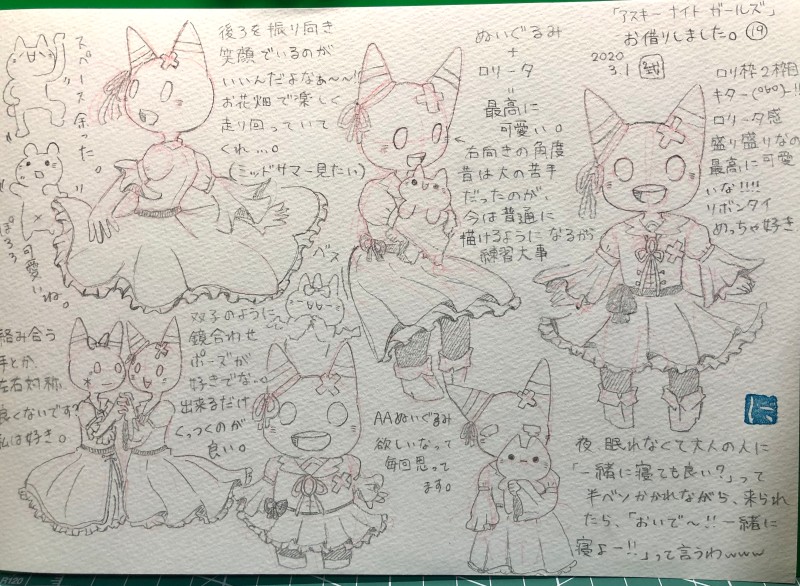 「アスキー ナイト ガールズ」
お借りしました。⑲
2020
3.1
スペース余った。
後ろを振り向き
笑顔でいるのが
いいんだよなぁ〜〜!!
お花畑で楽しく
走り回っていて
くれ…。
(ミッドサマー見たい)
ぬいぐるみ
+
ロリータ
=
最高に
可愛い。
右向きの角度
昔は大の苦手
だったのが、
今は普通に
描けるようになるから
練習大事
ロリ枠2枠目
キター(°∀°)ー!!
ロリータ感
盛り盛りなの
最高に可愛
いな!!!!
リボンタイ
めっちゃ好き
可愛いね。
絡み合う
手とか
左右対称
良くないです?
私は好き。
双子のように
鏡合わせ
ポーズが
好きでな…。
出来るだけ
くっつくのが
良い。
AAぬいぐるみ
欲しいなって
毎回思って
ます。
夜、眠れなくて大人の人に
「一緒に寝ても良い?」って
半ベソかかれながら、来られ
たら、「おいで〜!!一緒に
寝よー!!」って言うわwww